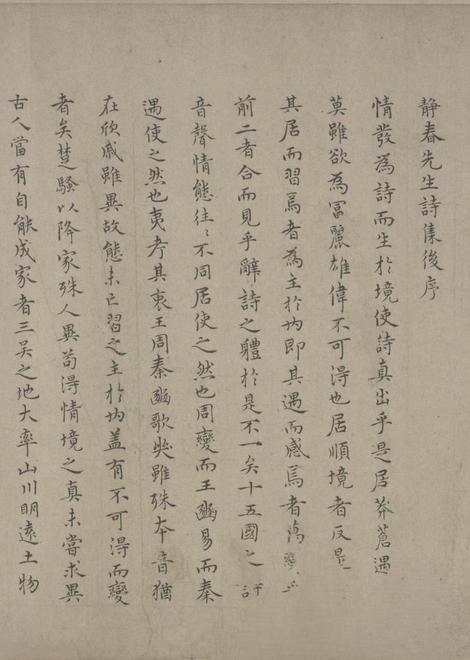 静春先生詩集後序
情發為詩而生於境使詩真出乎是居莽蒼遇
莫雖欲為富麗雄偉不可得也居順境者反是
其居而習焉者為主於内即其遇而感焉者萬
前二者合而見乎辭詩之體於是不一矣十五國之
音聲情態往〻不同居使之然也周變而王豳易而秦
遇使之然也夷考其衷王周秦豳歌哭雖殊本音猶
在欣戚雖異故態未亡習之主於内蓋有不可得而變
者矣楚騷以降家殊人異苟得情境之真未嘗求異
古人當有自能成家者三吳之地大率山川明遠土物